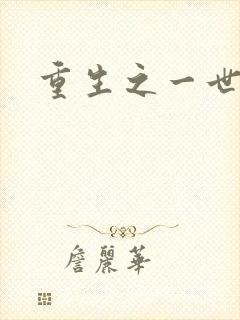 重生之一世
詹麗華